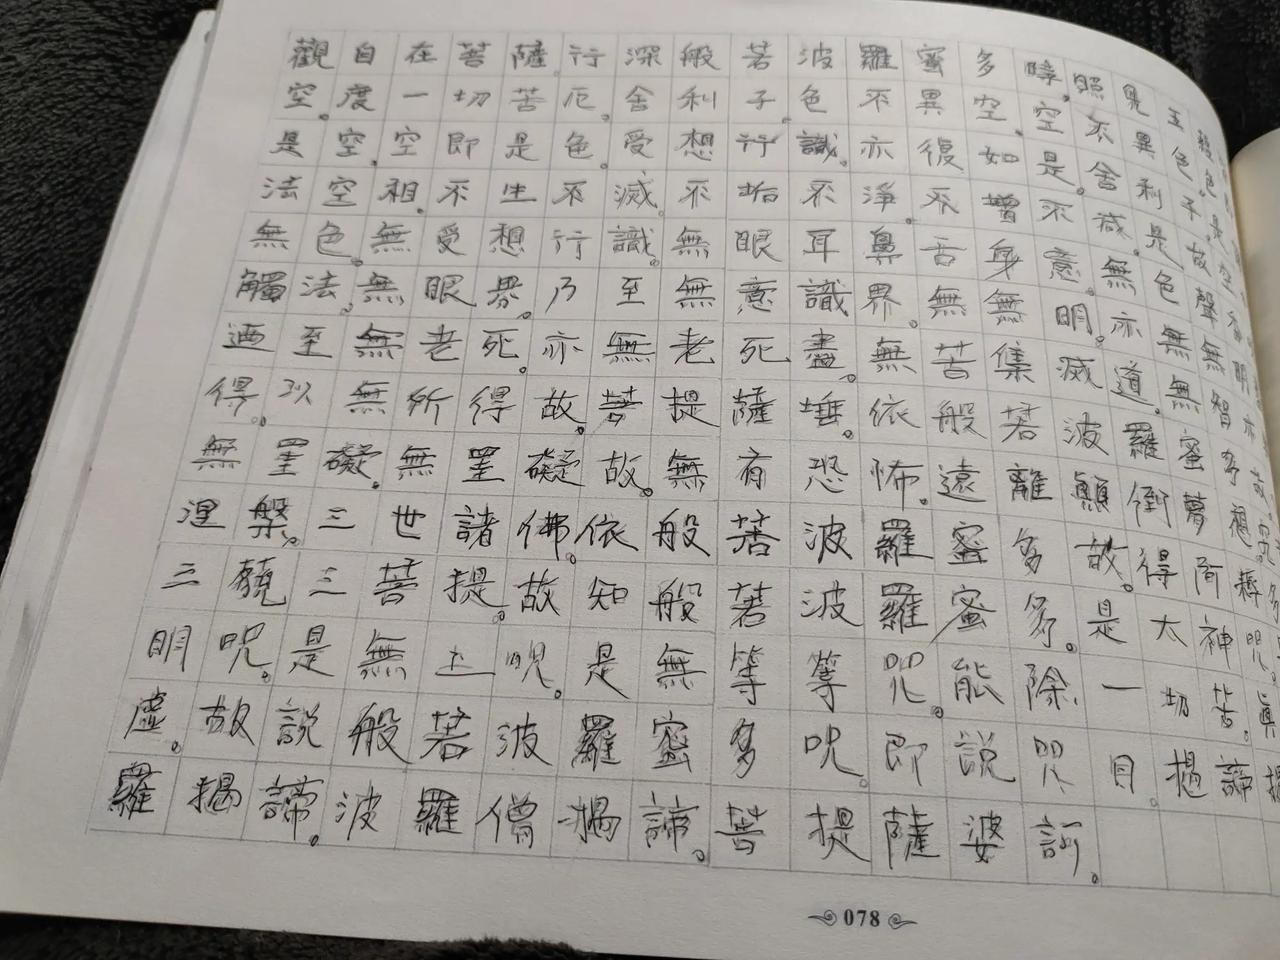 觀自在菩薩。行深般若波羅蜜多時。照見五蘊
空。度一切苦厄。舍利子。色不異空。空不異色。
是空。空即是色。受想行識。亦復如是。舍利子。是
法空相。不生不滅。不垢不淨。不增不減。是故空
無色。無受想行識。無眼耳鼻舌身意。無色聲
觸法。無眼界。乃至無意識界。無無明。亦無無明
迺至無老死。亦無老死盡。無苦集滅道。無智亦
得。以無所得故。菩提薩埵。依般若波羅蜜多故
無罣礙。無罣礙故。無有恐怖。遠離顛倒夢想。究
涅槃。三世諸佛。依般若波羅蜜多故。得阿耨多
三藐三菩提。故知般若波羅蜜多。是太神咒。是
明咒。是無上咒。是無等等咒。能除一切苦。真
虛。故說般若波羅蜜多咒。即說咒曰。揭諦揭
羅揭諦。波羅僧揭諦。菩提薩婆訶。
078